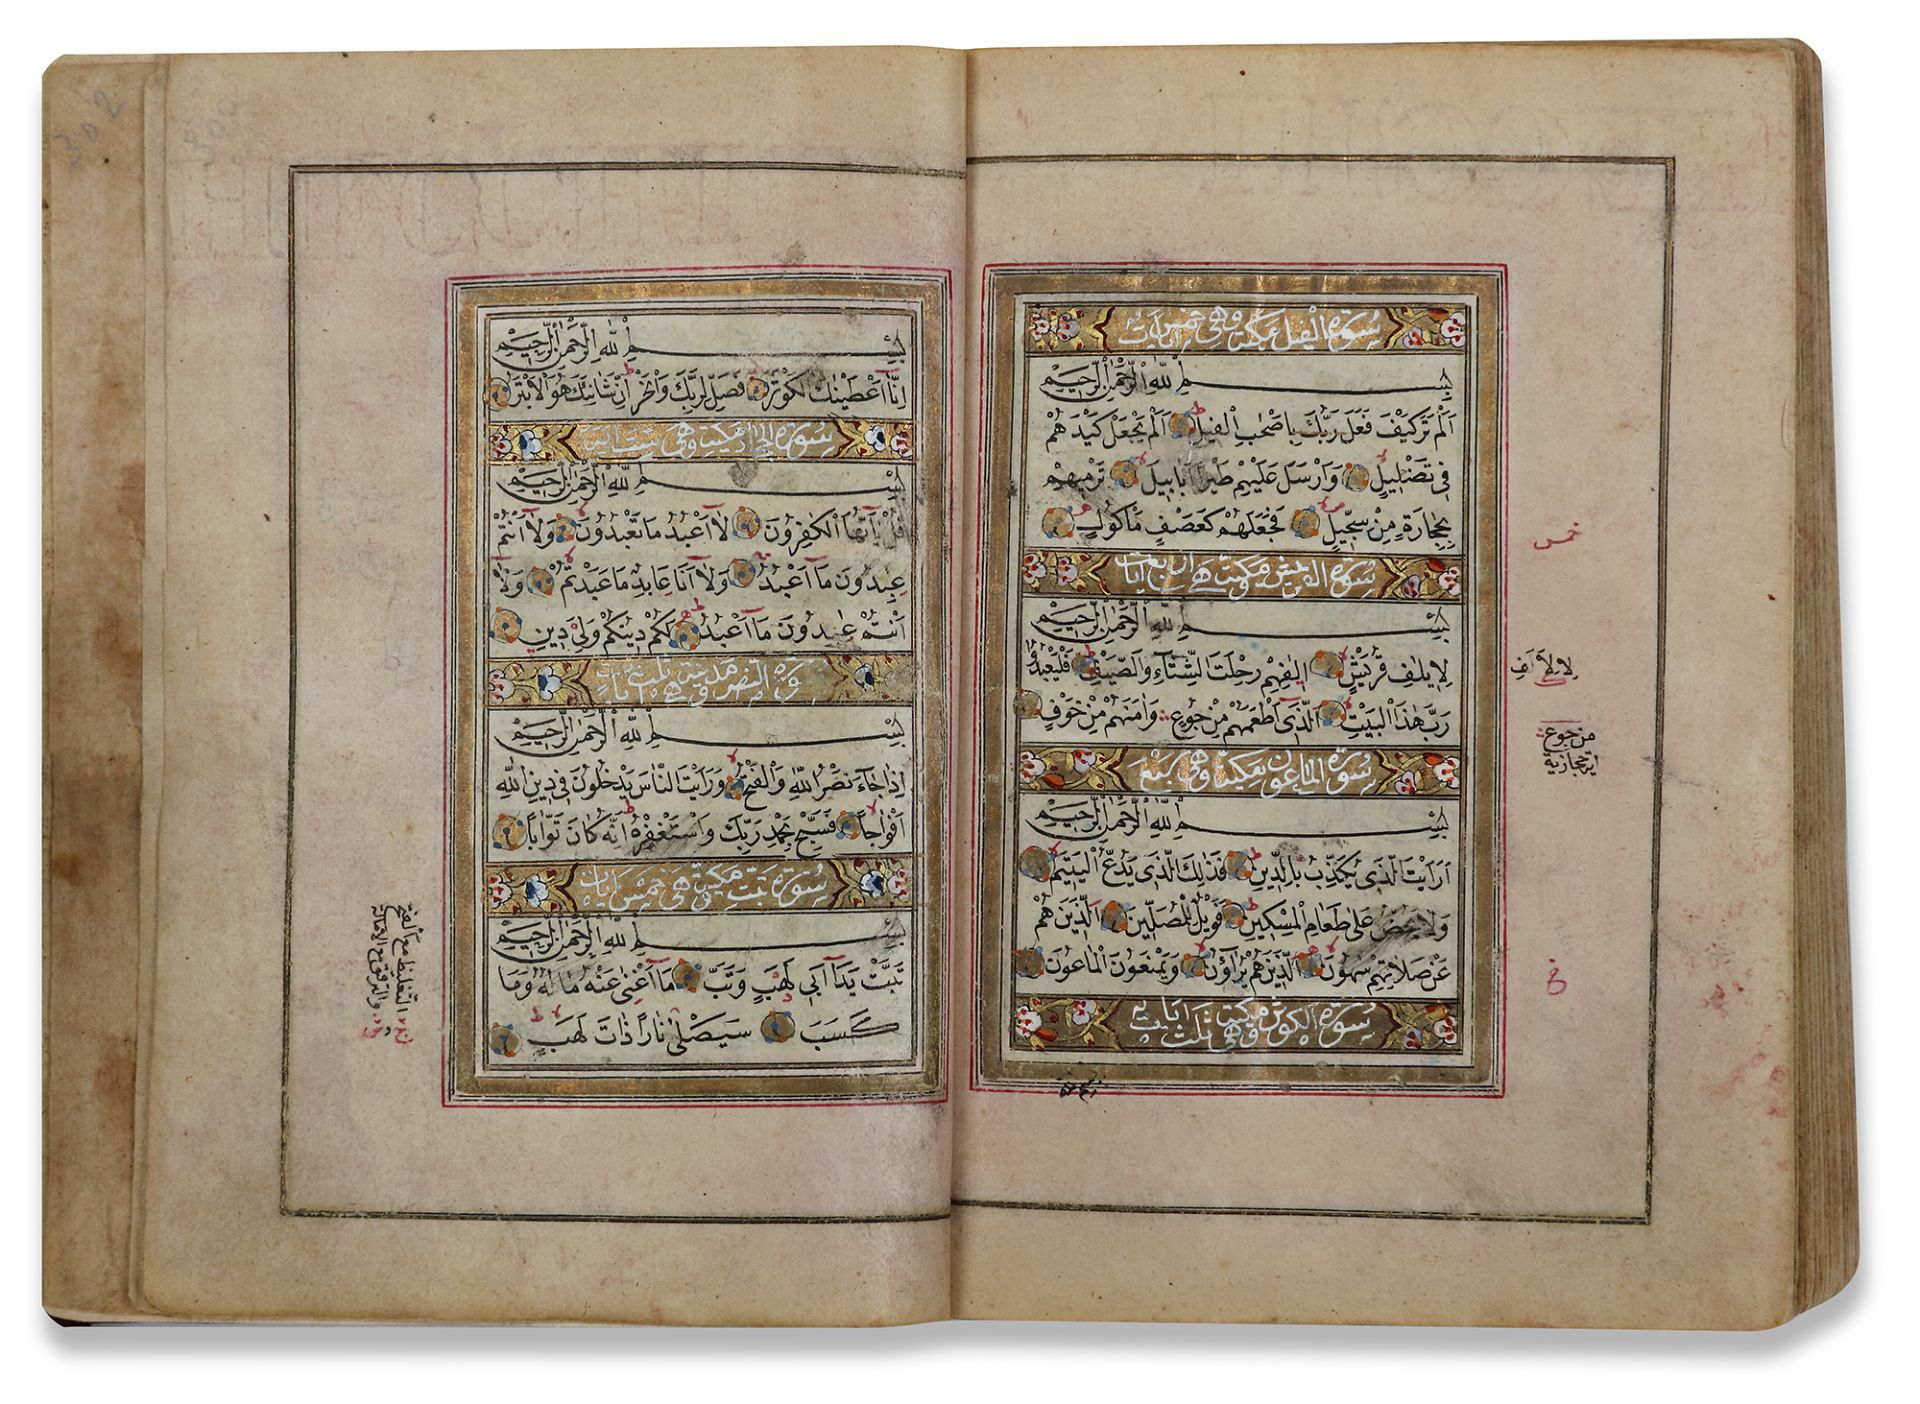 سورة الفيل مكية وهي خمس ايات
بِسْمِ اللّٰهِ الرَّحْمٰنِ الرَّحِيمِ
اَلَمْ تَرَ كَيْفَ فَعَلَ رَبُّكَ بِاَصْحٰبِ الْفِيلِ اَلَمْ يَجْعَلْ كَيْدَهُمْ
فِى تَضْلِيلٍ وَاَرْسَلَ عَلَيْهِمْ طَيْرًا اَبَابِيلَ تَرْمِيهِمْ
بِحِجَارَةٍ مِنْ سِجِّيلٍ فَجَعَلَهُمْ كَعَصْفٍ مَأْكُولٍ
خمس
سورة القريش مكية وهي اربع ايات
بِسْمِ اللّٰهِ الرَّحْمٰنِ الرَّحِيمِ
لِاِيلٰفِ قُرَيْشٍ اِيلٰفِهِمْ رِحْلَتَ الشِّتَآءِ وَالصَّيْفِ فَلْيَعْبُدُوا
رَبَّ هٰذَا الْبَيْتِ اَلَّذِى اَطْعَمَهُمْ مِنْ جُوعٍ وَاٰمَنَهُمْ مِنْ خَوْفٍ
من جوع
اية حجازية
سورة الماعون مكية وهي سبع
بِسْمِ اللّٰهِ الرَّحْمٰنِ الرَّحِيمِ
اَرَاَيْتَ الَّذِى يُكَذِّبُ بِالدِّينِ فَذٰلِكَ الَّذِى يَدُعُّ الْيَتِيمَ
وَلَا يَحُضُّ عَلٰى طَعَامِ الْمِسْكِينِ فَوَيْلٌ لِلْمُصَلِّينَ اَلَّذِينَ هُمْ
عَنْ صَلَاتِهِمْ سَاهُونَ اَلَّذِينَ هُمْ يُرَاؤُنَ وَيَمْنَعُونَ الْمَاعُونَ
سورة الكوثر مكية وهي ثلث ايات
بِسْمِ اللّٰهِ الرَّحْمٰنِ الرَّحِيمِ
اِنَّا اَعْطَيْنٰكَ الْكَوْثَرَ فَصَلِّ لِرَبِّكَ وَانْحَرْ اِنَّ شَانِئَكَ هُوَ الْاَبْتَرُ
سورة مكية وهي ست ايات
بِسْمِ اللّٰهِ الرَّحْمٰنِ الرَّحِيمِ
قُلْ يَآ اَيُّهَا الْكٰفِرُونَ لَآ اَعْبُدُ مَا تَعْبُدُونَ وَلَآ اَنْتُمْ
عٰبِدُونَ مَآ اَعْبُدُ وَلَآ اَنَا عَابِدٌ مَا عَبَدْتُمْ وَلَآ
اَنْتُمْ عٰبِدُونَ مَآ اَعْبُدُ لَكُمْ دِينُكُمْ وَلِىَ دِينِ
ورة النصر مدنية وهي ثلث ايات
بِسْمِ اللّٰهِ الرَّحْمٰنِ الرَّحِيمِ
اِذَا جَآءَ نَصْرُ اللّٰهِ وَالْفَتْحُ وَرَاَيْتَ النَّاسَ يَدْخُلُونَ فِى دِينِ اللّٰهِ
اَفْوَاجًا فَسَبِّحْ بِحَمْدِ رَبِّكَ وَاسْتَغْفِرْهُ اِنَّهُ كَانَ تَوَّابًا
سورة تبت مكية وهي خمس ايات
بِسْمِ اللّٰهِ الرَّحْمٰنِ الرَّحِيمِ
تَبَّتْ يَدَآ اَبِى لَهَبٍ وَتَبَّ مَآ اَغْنٰى عَنْهُ مَالُهُ وَمَا
كَسَبَ سَيَصْلٰى نَارًا ذَاتَ لَهَبٍ
302
300